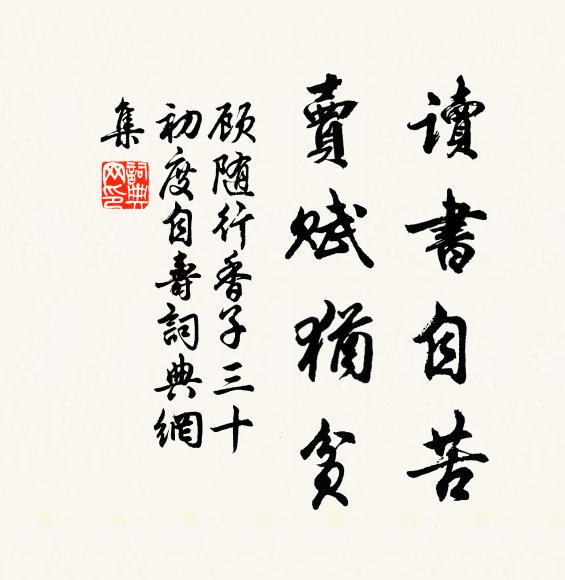 讀書自苦
賣賦猶貧
顾随行香子三十
初度自壽詞典網
集
詞典
网印